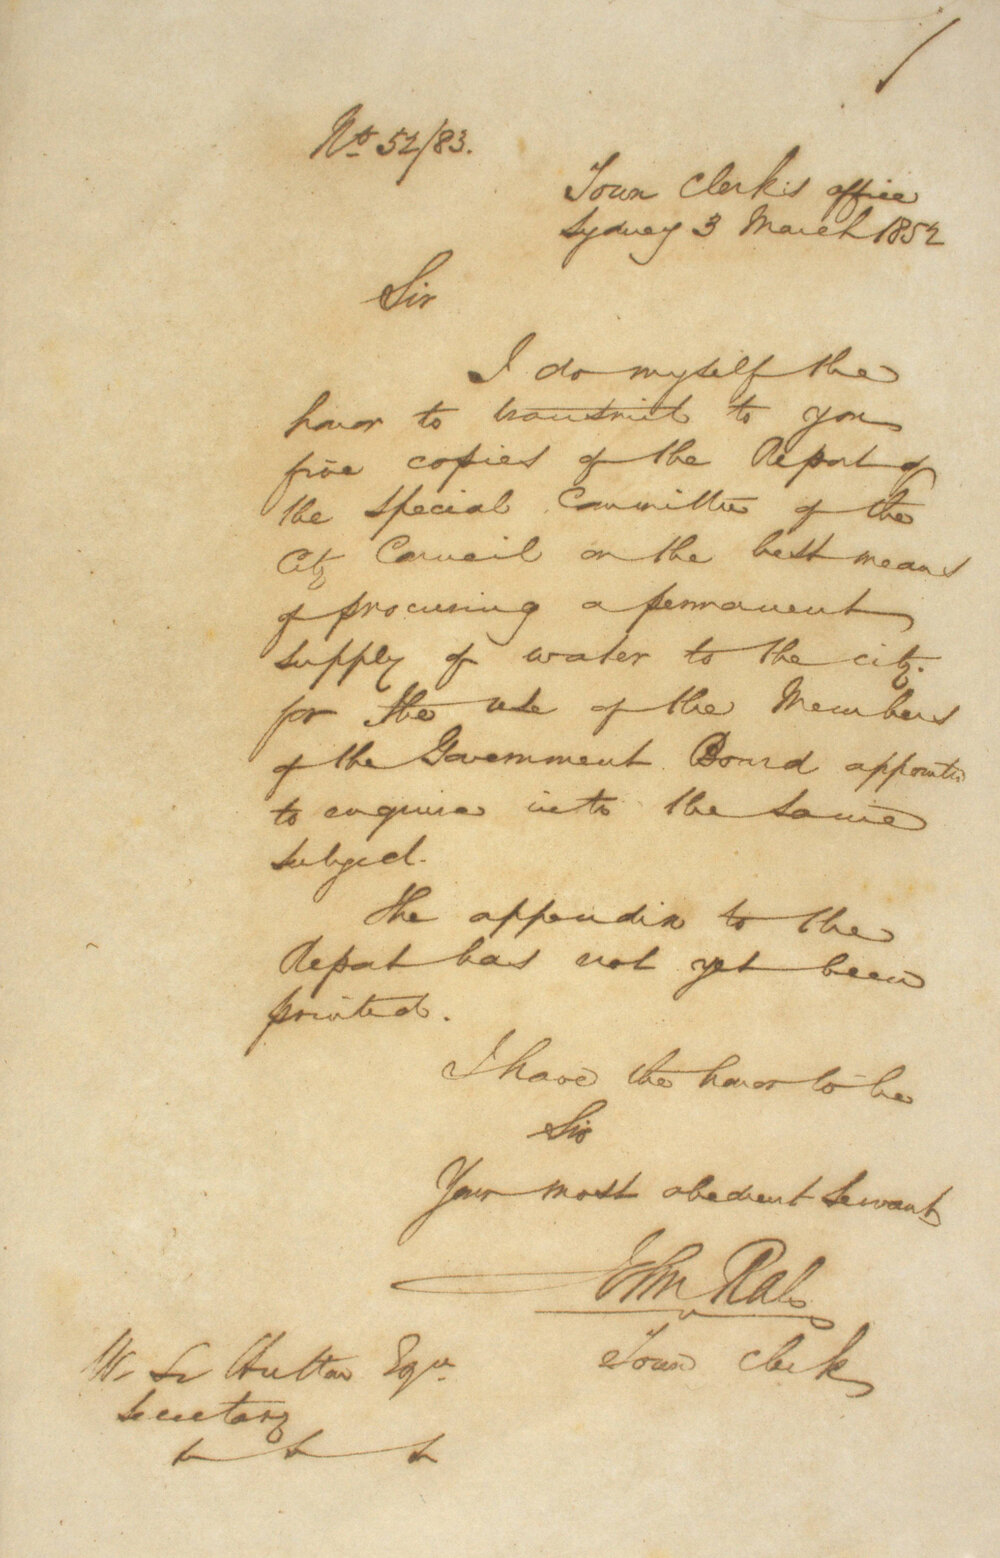 No 52/83.
Town Clerk's office
Sydney 3 March 1852
Sir
I do myself the
honor to transmit to you
five copies of the Report of
the Special Committee of the
City Council on the best means
of procuring a permanent
supply of water to the city.
for the use of the Members
of the Government Board appointed
to enquire into the same
subject.
The appendix to the
Report has not yet been
printed.
I have the honor to be
Sir
Your most obedient Servant
John Rae
Town Clerk
W Hutton Esqre
Secretary